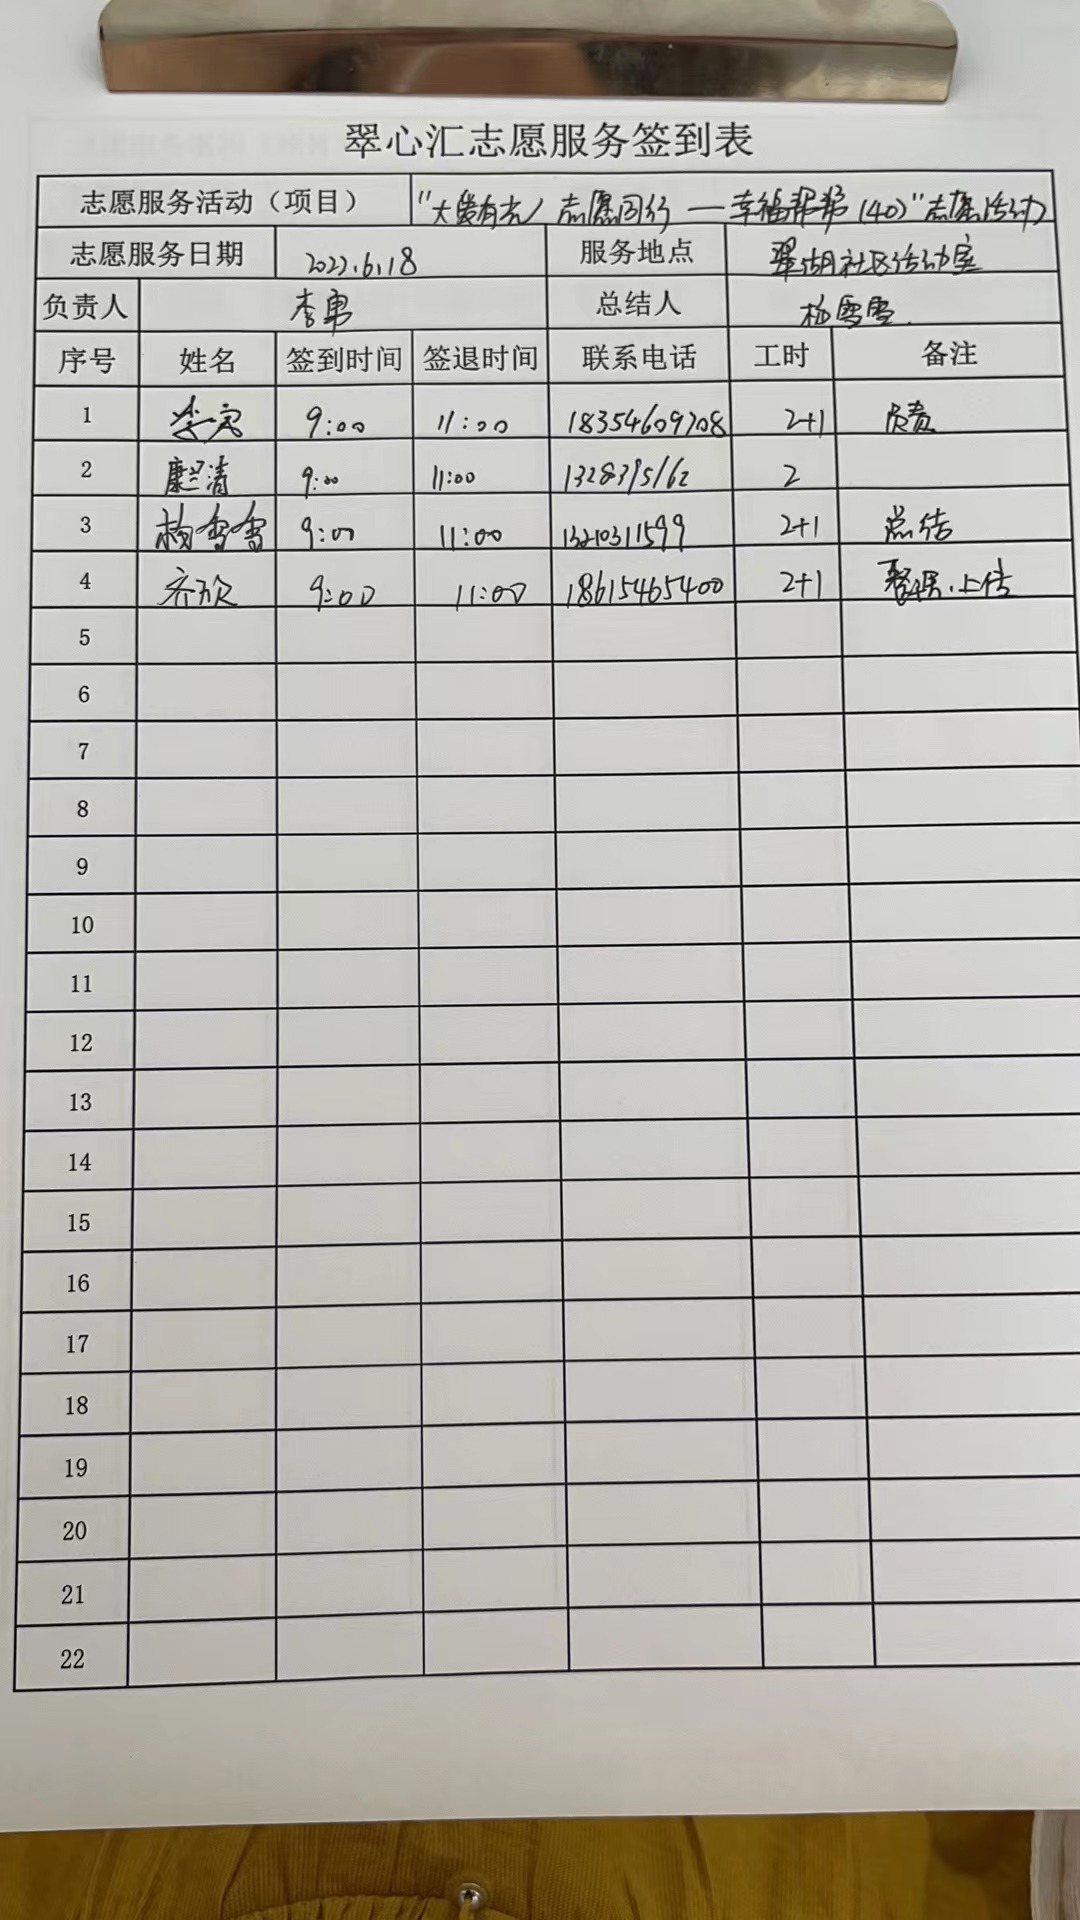 翠心汇志愿服务签到表
志愿服务活动（项目） "大爱有光 志愿同行 — 幸福帮帮 (40)"志愿活动
志愿服务日期 2022.6.18 服务地点 翠湖社区活动室
负责人 李勇 总结人 杨雪雪
序号 姓名 签到时间 签退时间 联系电话 工时 备注
1 9:00 11:00 18354609708 2+1 负责
2 康兰清 9:00 11:00 2
3 杨雪雪 9:00 11:00 13210311599 2+1 总结
4 齐欣 9:00 11:00 18615465400 2+1 上传
5
6
7
8
9
10
11
12
13
14
15
16
17
18
19
20
21
22